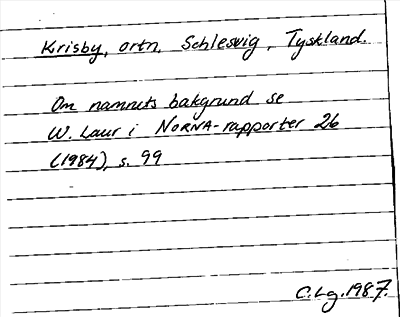 Krisby, ortn. Schlesvig, Tyskland.
Om namnets bakgrund se
W. Laur i NORNA-rapporter 26
(1984), s. 99
C. Lg. 1987.